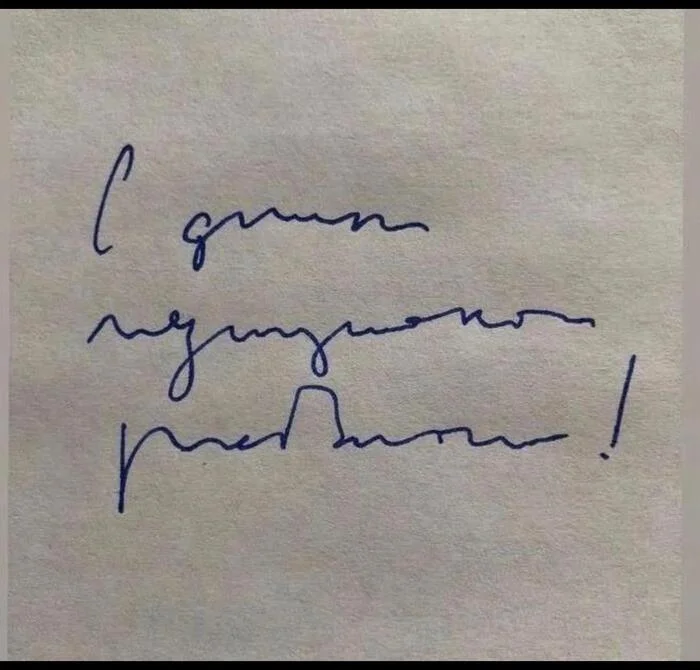 С днём
медицинского
работника!